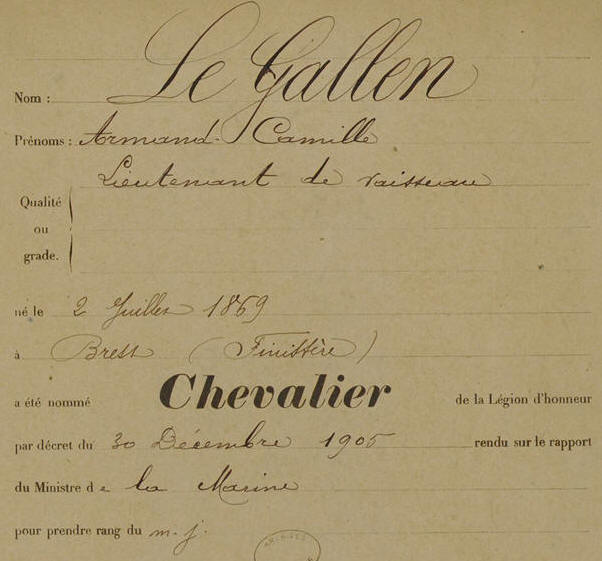 Nom : Le Gallen
Prénoms : Armand Camille
Lieutenant de vaisseau
Qualité
ou
grade.
né le 2 Juillet 1869
à Brest (Finistère)
a été nommé Chevalier de la Légion d'honneur
par décret du 30 Décembre 1905 rendu sur le rapport
du Ministre de la Marine
pour prendre rang du m. j.